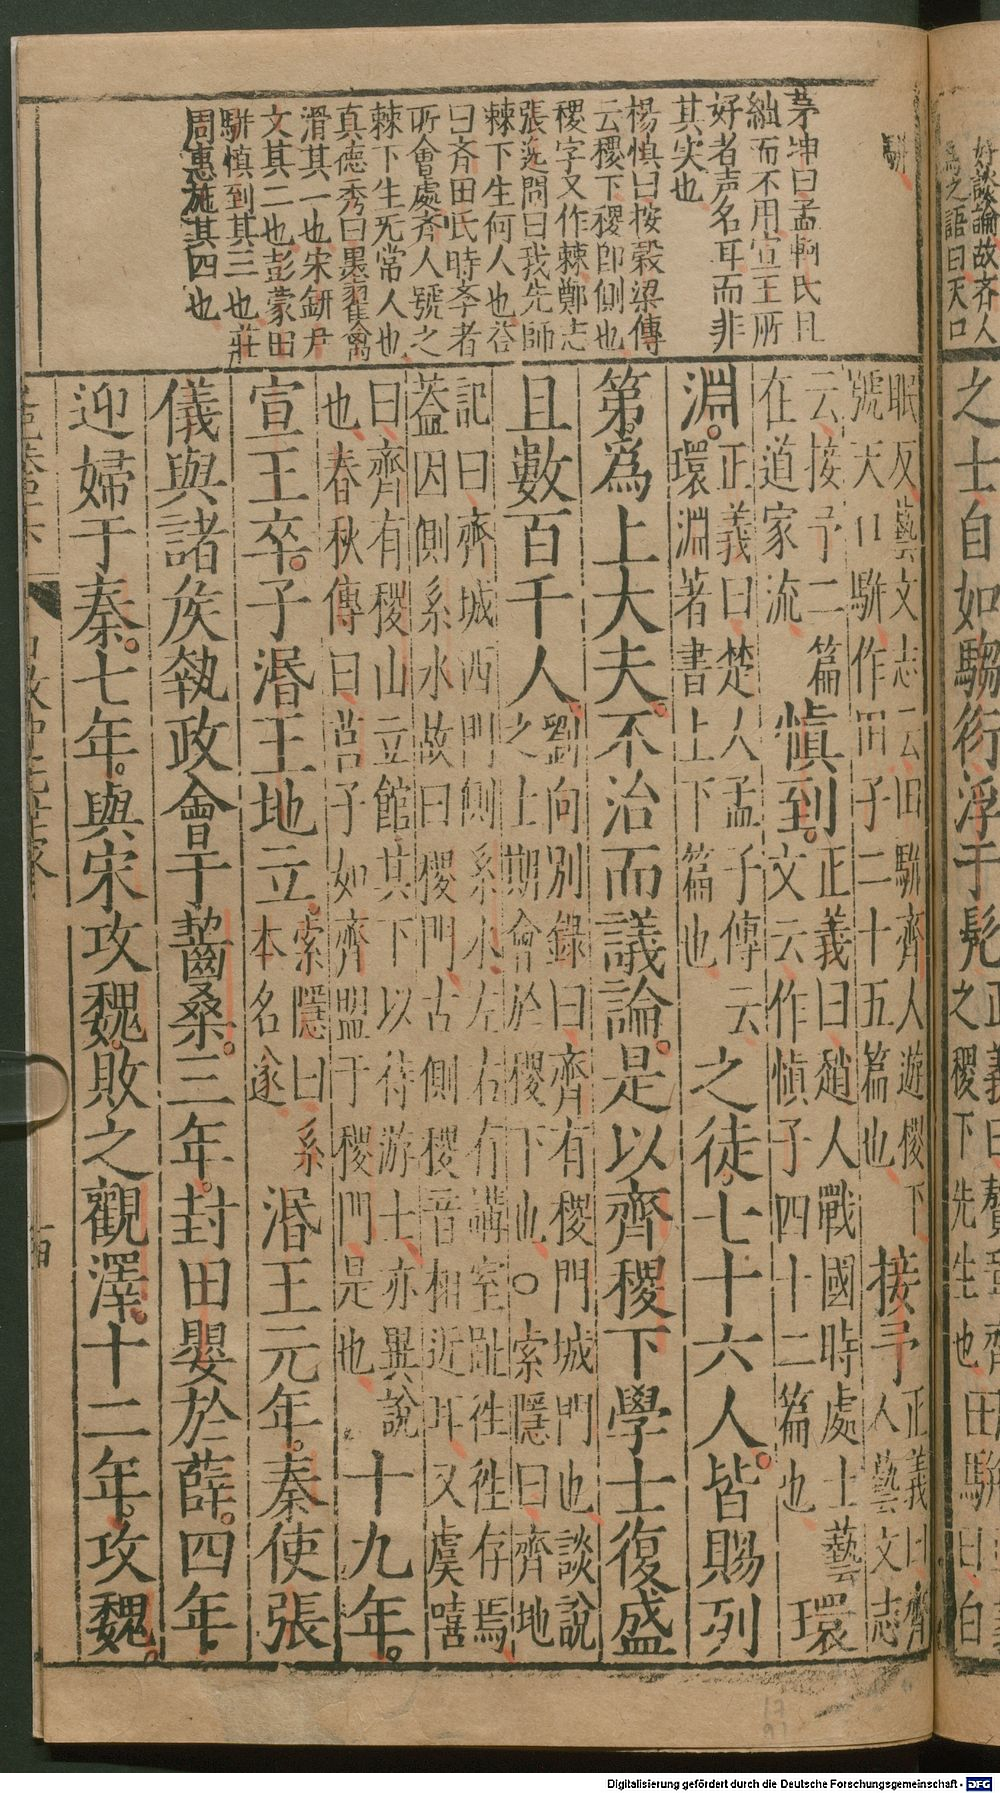 好談論故齊人
為之語曰天口
駢
茅坤曰孟軻氏且
絀而不用宣王所
好者声名耳而非
其实也
楊慎曰按穀梁傳
云稷下稷卽側也
稷字又作棘鄭志
張逸問曰我先師
棘下生何人也荅
曰斉田氏時李者
所會處齐人號之
棘下生无常人也
真德秀曰墨翟禽
滑其一也宋鈃尹
文其二也彭蒙田
駢慎到其三也莊
周惠施其四也
之士自如騶衍淳于髡
之稷下先生也田駢
眠反藝文志云田駢齊人遊稷下
號天口駢作田子二十五篇也
接予
正義曰齊
人藝文志
云接予二篇
在道家流
慎到。
正義曰趙人戰國時處士藝
文云作愼子四十二篇也
環
淵。
正義曰楚人孟子傳云
環淵著書上下篇也
之徒七十六人。皆賜列
第。爲上大夫。不治而議論。是以齊稷下學士復盛
且數百千人。
劉向別錄曰齊有稷門城門也談說
之士期會於稷下也○索隱曰齊地
記曰齊城西門側系水左右有講室趾徃徃存焉
蓋因側系水故曰稷門古側稷音相近耳又虞喜
曰齊有稷山立館其下以待游士亦異說
也春秋傳曰莒子如齊盟于稷門是也
十九年。
宣王卒。子湣王地立。
索隱曰系
本名遂
湣王元年。秦使張
儀與諸矦執政會于齧桑。三年。封田嬰於薛。四年。
迎婦于秦。七年。與宋攻魏。敗之觀澤。十二年。攻魏。